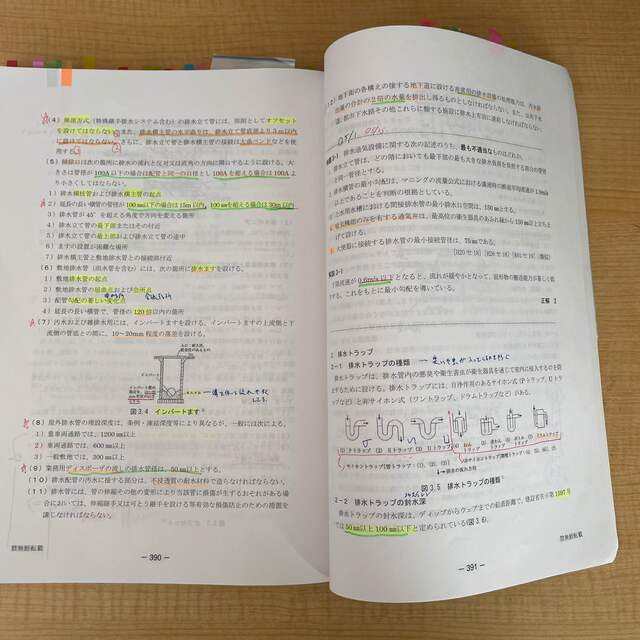 (4) 伸頂方式(特殊継手排水システム含む)の排水立て管には,原則としてオフセット
を設けてはならない。また,排水横主管の水平曲りは,排水立て管底部より3m以内
に設けてはならない。さらに,排水立て管と排水横主管の接続は大曲ベンドなどを使
用する。
(5) 掃除口は次の箇所に排水の流れと反対又は直角の方向に開口するように設ける。大
きさは管径が100A以下の場合は配管と同一の口径とし100Aを超える場合は100Aよ
り小さくしてはならない。
1) 排水横枝管および排水横主管の起点
2) 延長の長い横管の管径が100mm以下の場合は15m以内,100mmを超える場合は30m以内
3) 排水管が45°を超える角度で方向を変える箇所
4) 排水立て管の最下部またはその付近
5) 排水立て管の最上部および排水立て管の途中
6) ますの設置が困難な場所
7) 排水横主管と敷地排水管の接続部付近
(6) 敷地排水管(雨水管を含む)には,次の箇所に排水ますを設ける。
1) 敷地排水管の起点
2) 敷地排水管の屈曲点および会所点
3) 配管勾配の著しい変化点
4) 延長の長い横管で,管径の120倍以内の箇所
(7) 汚水および雑排水用には,インバートますを設ける。インバートますの上流側と下
流側の管底との間に,10〜20mm程度の落差を設ける。
図3.4 インバートます
(8) 屋外排水管の埋設深度は,条例・凍結深度等により異なるが,一般には次による。
1) 重車両通路では,1200mm以上
2) 車両通路では,600mm以上
3) 一般敷地では,300mm以上
(9) 業務用ディスポーザの流しの排水管径は,50mm以上とする。
(10) 排水配管の汚水に接する部分は,不浸透質の耐水材料で造らなければならない。
(11) 排水管には,管の伸縮その他の変形により当該管に損傷が生ずるおそれがある場
合においては,伸縮継手又は可とう継手を設ける等有効な損傷防止のための措置を
講じなければならない。
-390-
禁無断転載
(12) 地下街の各構えの接する地下道に設ける非常用の排水設備の処理能力は,汚水排
出量の合計の2倍の水量を排出し得るものとしなければならない。また,公共下水
道,都市下水路その他これらに類する施設に排水上有効に連結しなければならない。
例題3-1 排水通気設備に関する次の記述のうち,最も不適当なものはどれか。
排水立て管は,どの階においても最下部の最も大きな排水負荷を負担する部分の管径
以上であることを判断の根拠としている。
汚水用水槽における間接排水管の最小排水口空間は,150mmとする。
げて設ける。
大便器に接続する排水管の最小接続管径は,75mmである。
解説3-1
下限流速が0.6m/s以下となると,流れが緩やかとなって,固形物の搬送能力が著しく低
下する。これをもとに最小勾配を導いている。
正解 2
2 排水トラップ
2-1 排水トラップの種類
排水トラップは,排水管内の悪臭や衛生害虫が衛生器具を通じて室内に侵入するのを防
止するために設ける。排水トラップには,自浄作用のあるサイホン式(Pトラップ,Uトラ
ップなど)と非サイホン式(ワントラップ,ドラムトラップなど)がある。
図3.5 排水トラップの種類
2-2 排水トラップの封水深
排水トラップの封水深は,ディップからウェアまでの鉛直距離で,建設省告示第1597号
では50mm以上100mm以下と定められている(図3.6)。
-391-
禁無断転載